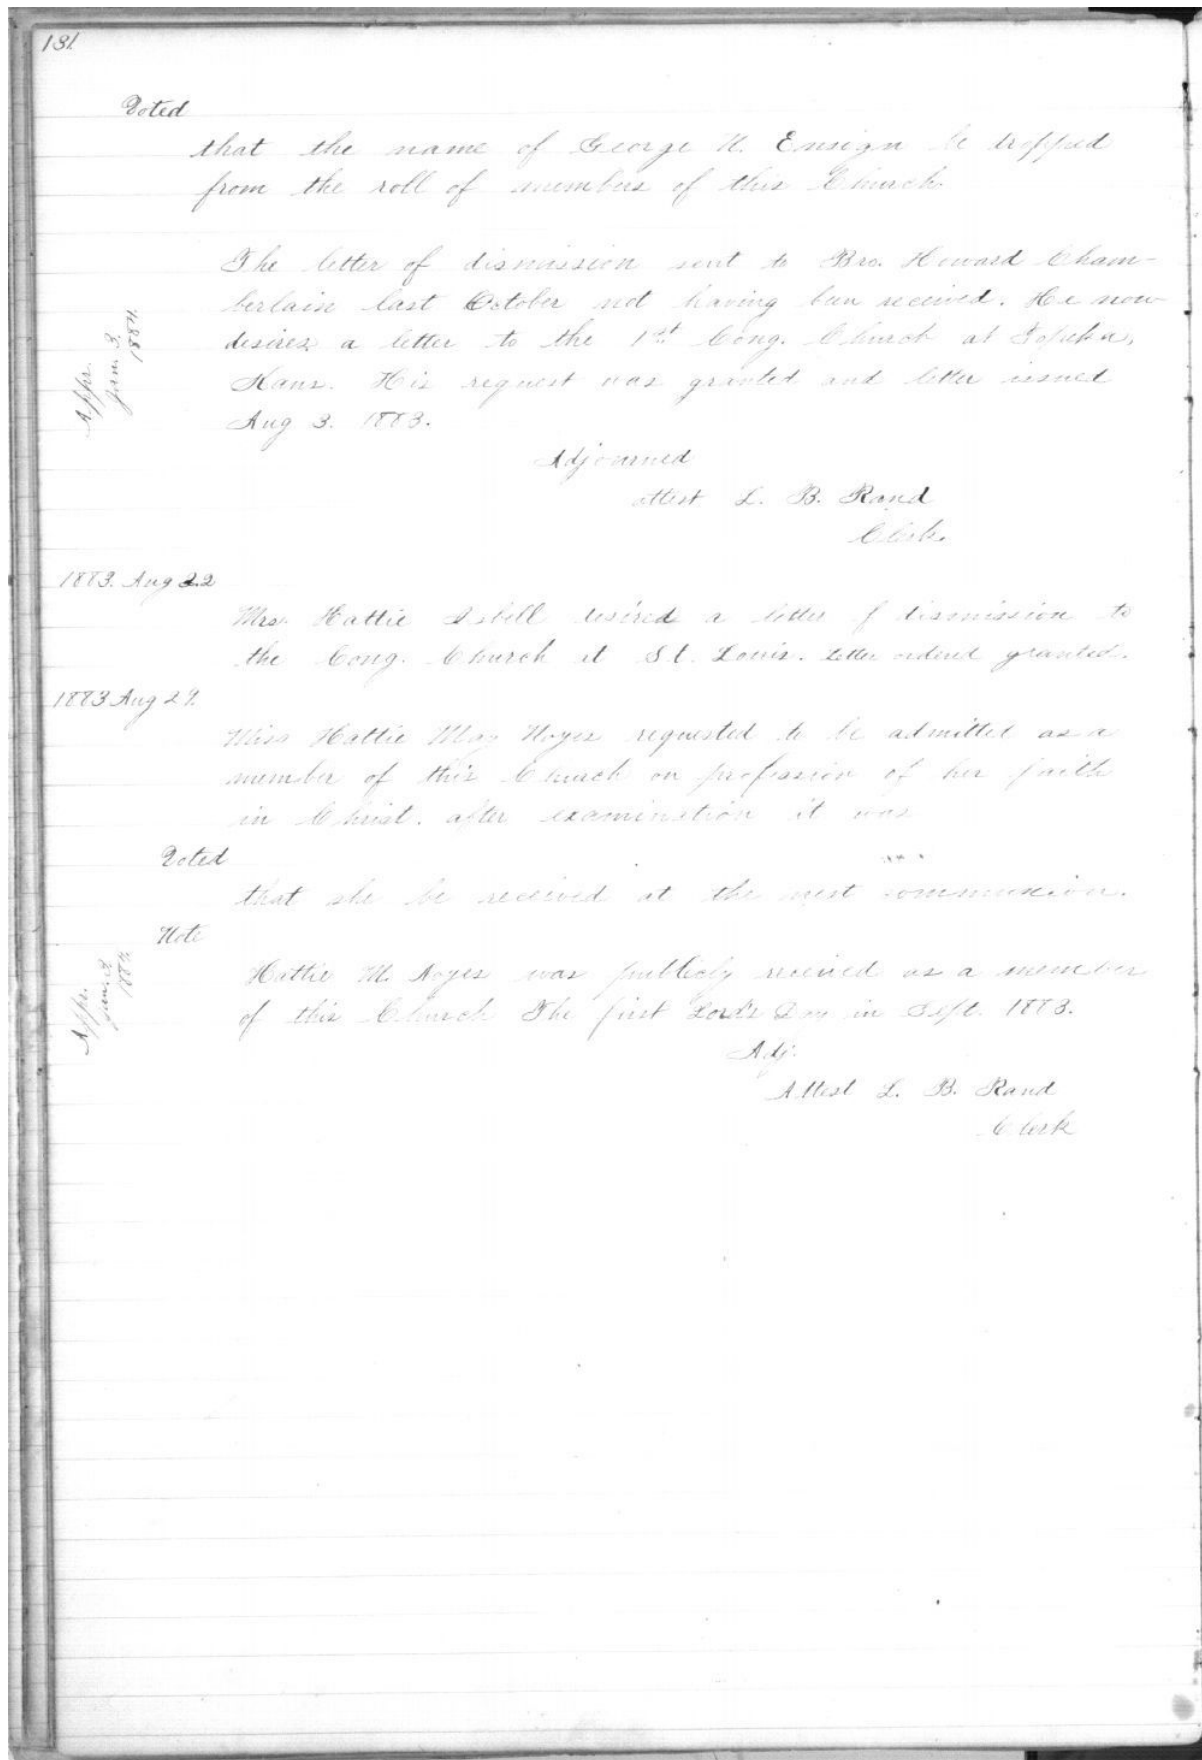 131
Voted
that the name of George H. Ensign be dropped
from the roll of members of this Church.
The letter of dismission sent to Bro. Howard Cham-
berlain last October not having been received. He now
desires a letter to the 1st Cong. Church at Topeka,
Kans. His request was granted and letter issued
Aug 3. 1883.
Appr.
Jan. 3.
1884.
Adjourned
attest L. B. Rand
Clerk.
1883. Aug 22
Mrs. Hattie Isbell desired a letter of dismission to
the Cong. Church at St. Louis. Letter ordered granted.
1883 Aug 29.
Miss Hattie May Noyes requested to be admitted as a
member of this Church on profession of her faith
in Christ. after examination it was
Voted
that she be received at the next communion.
Note
Hattie M. Noyes was publicly received as a member
of this Church The first Lord's Day in Sept. 1883.
Appr.
Jan. 3
1884
Adj.
Attest L. B. Rand
Clerk